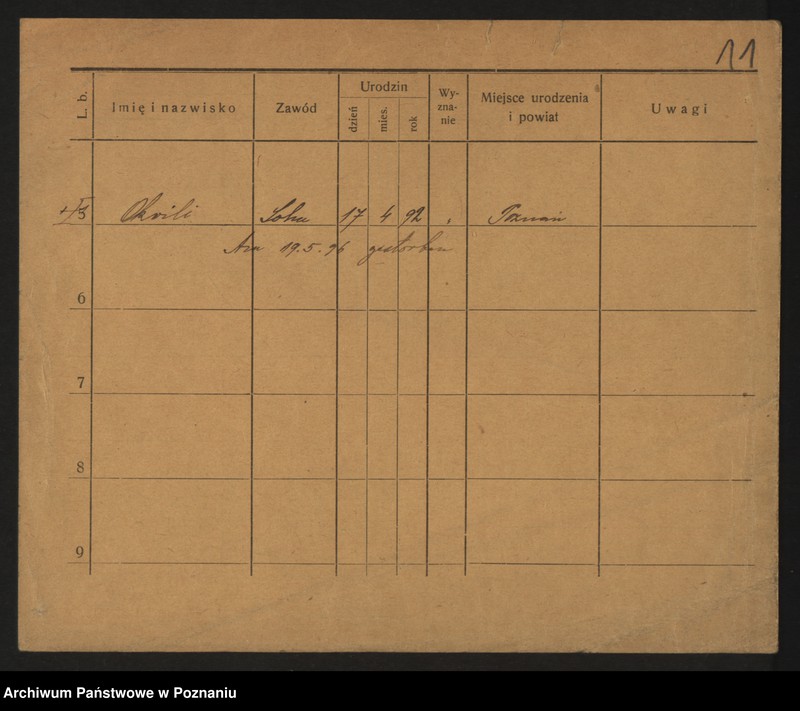 11
L. b.
Imię i nazwisko
Zawód
Urodzin
dzień
mies.
rok
Wy-
zna-
nie
Miejsce urodzenia
i powiat
Uwagi
5 Sohn 17 4 92 Poznań
Am 19.5.96 gestorben
6
7
8
9
Archiwum Państwowe w Poznaniu